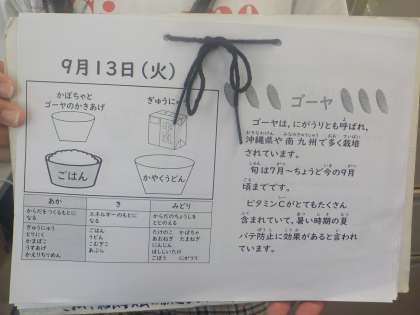 9月13日（火）
かぼちゃと
ゴーヤのかきあげ
ぎゅうにゅ
ごはん
かやくうどん
あか
き
みどり
からだをつくるもとに
なる
エネルギーのもとに
なる
からだのちょうしを
ととのえる
ぎゅうにゅう
とりにく
かまぼこ
うすあげ
かえりちりめん
ごはん
うどん
こむぎこ
あぶら
たけのこ かぼちゃ
あおねぎ たまねぎ
にんじん
ほししいたけ
ごぼう にがうり
ゴーヤ
ゴーヤは、にがうりとも呼ばれ、
沖縄県や南九州で多く栽培
されています。
旬は7月～ちょうど今の9月
頃までです。
ビタミンCがとてもたくさん
含まれていて、暑い時期の夏
バテ防止に効果があると言われ
ています。